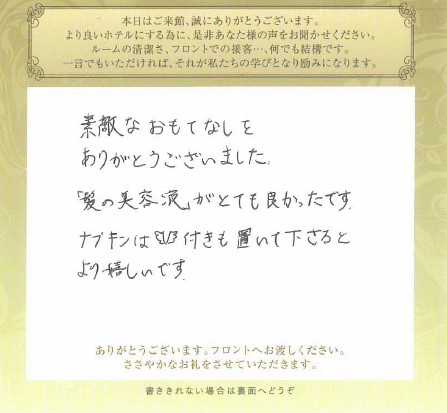 本日はご来館、誠にありがとうございます。
より良いホテルにする為に、是非あなた様の声をお聞かせください。
ルームの清潔さ、フロントでの接客…、何でも結構です。
一言でもいただければ、それが私たちの学びとなり励みになります。
素敵なおもてなしを
ありがとうございました。
「髪の美容液」がとても良かったです。
ナプキンは 付きも置いて下さると
より嬉しいです。
ありがとうございます。フロントへお渡しください。
ささやかなお礼をさせていただきます。
書ききれない場合は裏面へどうぞ